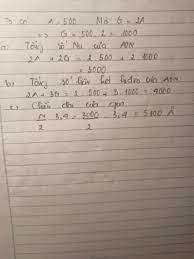 Ta có A = 500 Mà G = 2A
=> G = 500.2 = 1000
a) Tổng số Nu của ADN
2A + 2G = 2.500 + 2.1000
= 3000
b) Tổng số liên kết hidro của ADN
2A + 3G = 2.500 + 3.1000 = 4000
c) Chiều dài của gen
N/2 . 3,4 = 3000/2 . 3,4 = 5100 Å